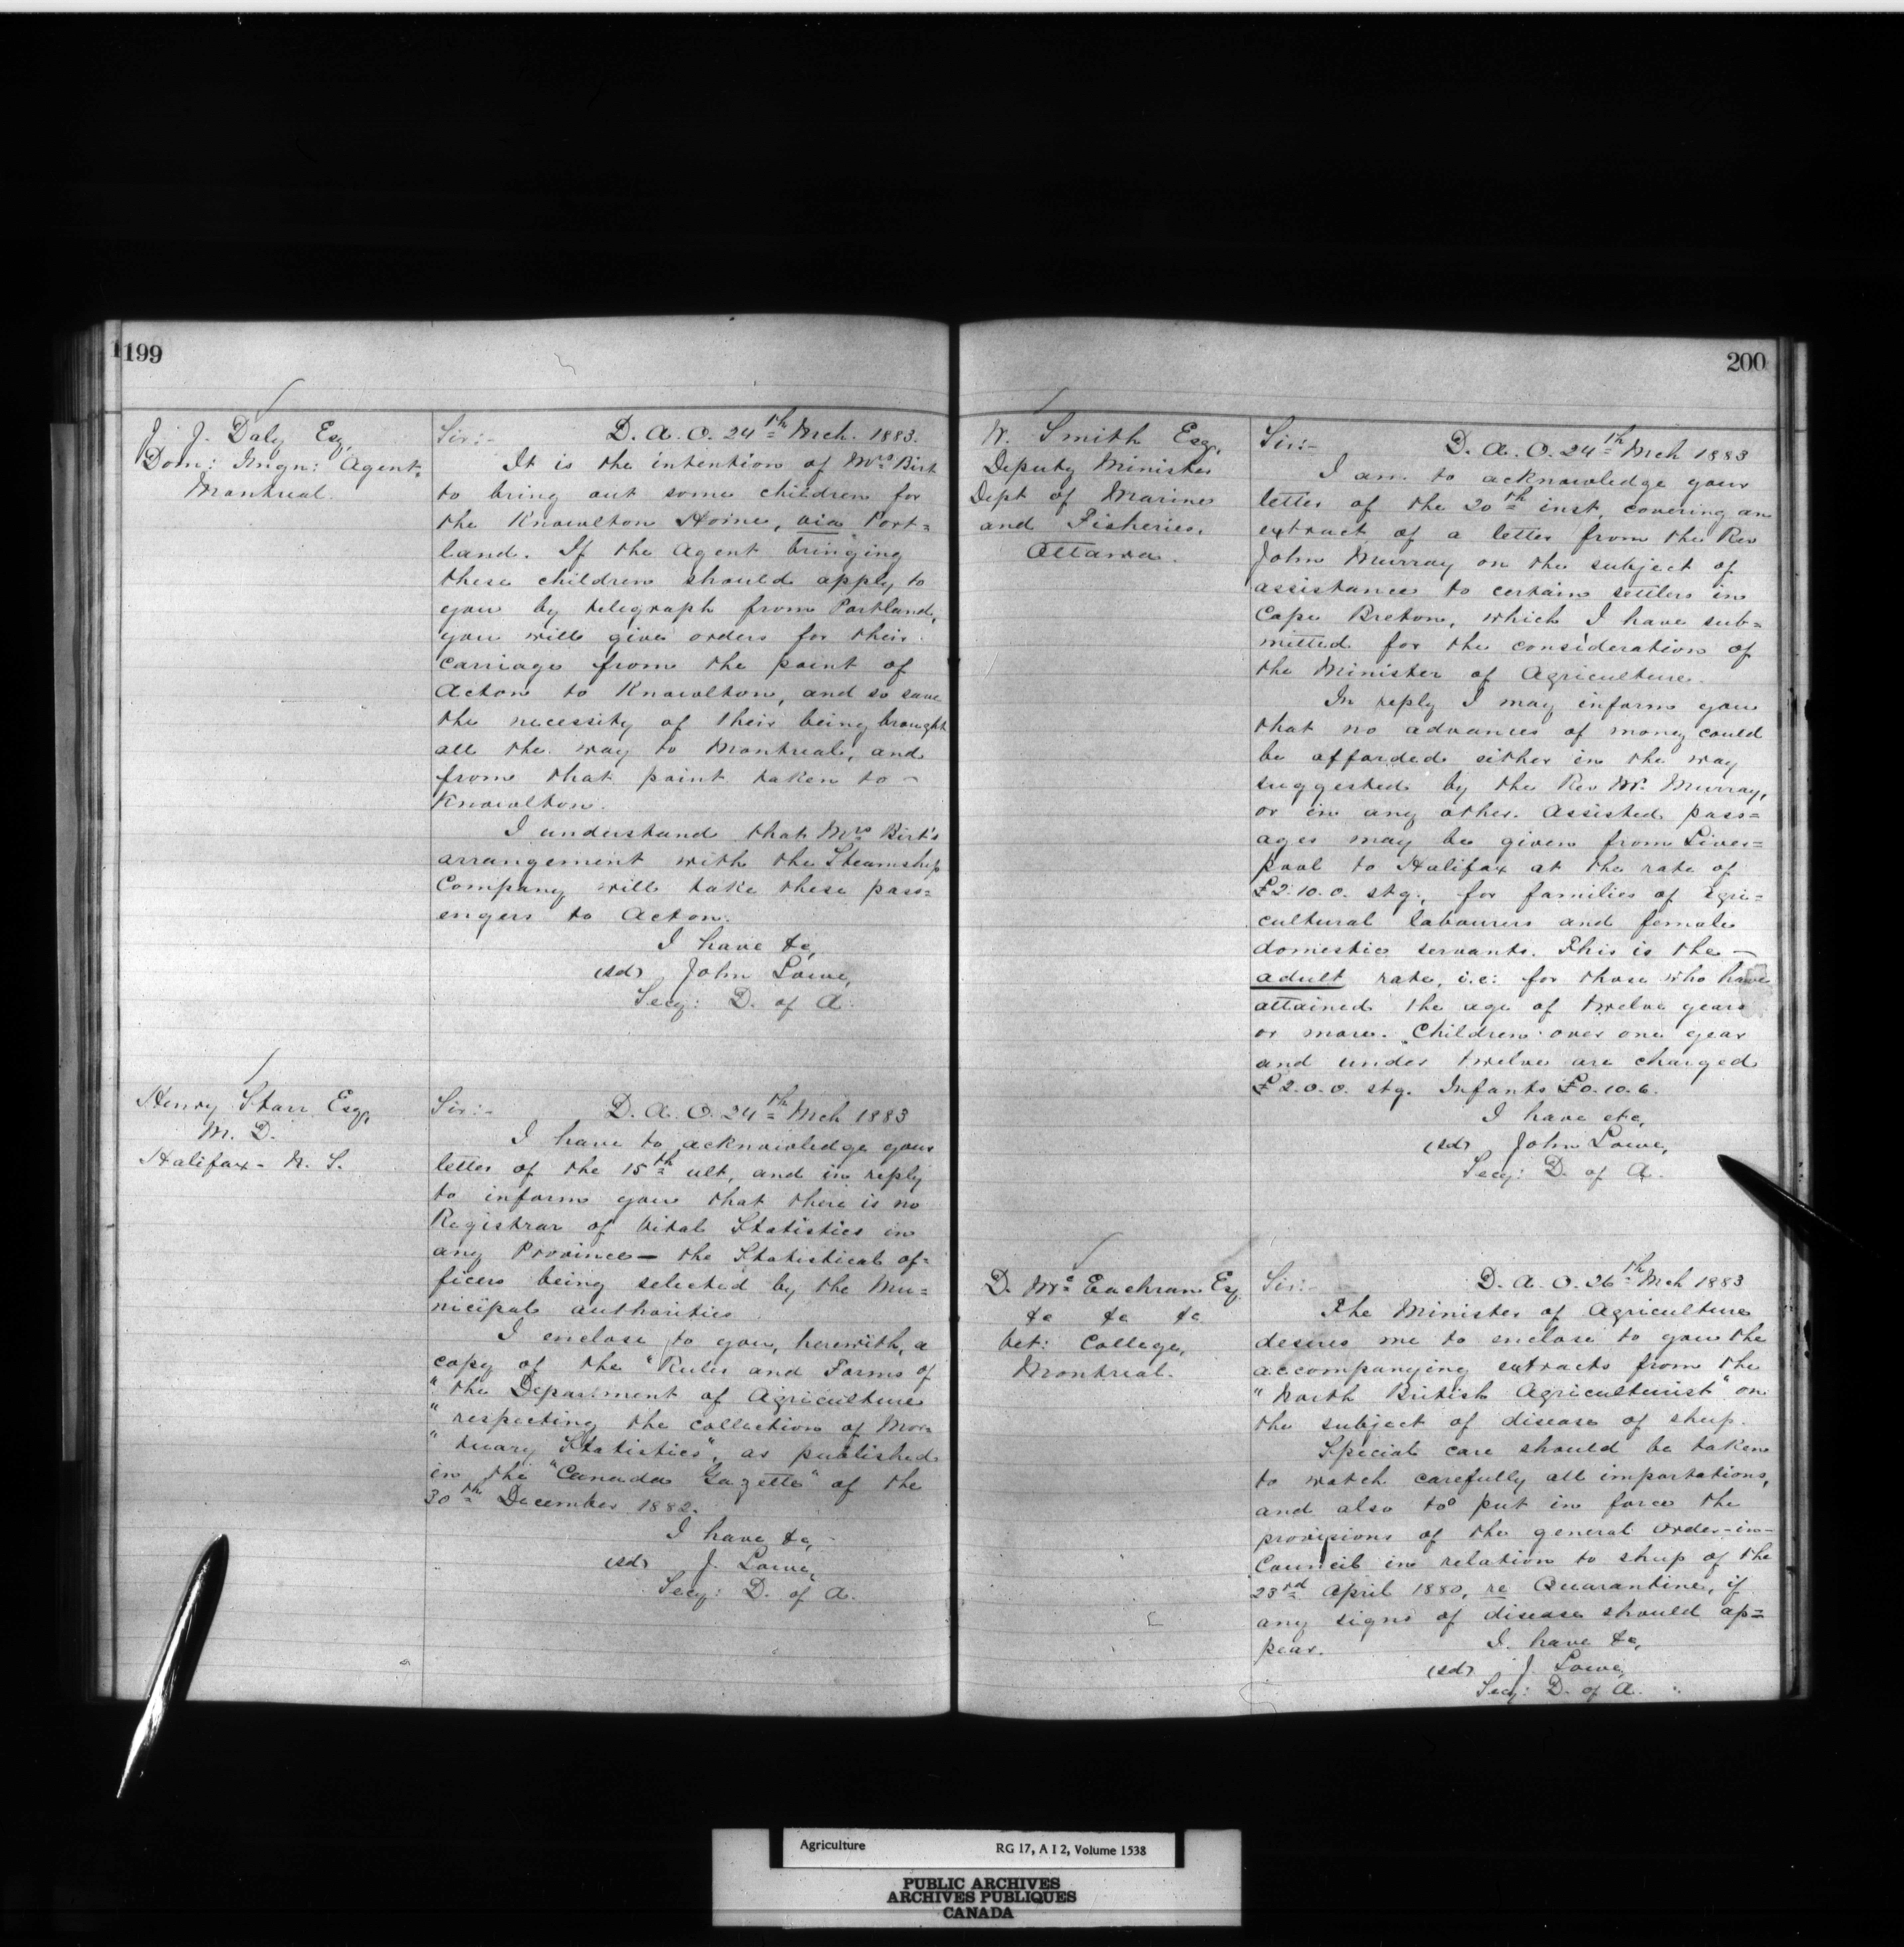 199
J. J. Daly Esq,
Dom: Imgn: Agent
Montreal.
Sir:- D. A. O. 24th Mch. 1883.
It is the intention of Mrs Birt
to bring out some children for
the Knowlton Home, via Port=
land. If the Agent bringing
these children should apply to
you by telegraph from Portland,
you will give orders for their
carriage from the point of
Acton to Knowlton, and so save
the necessity of their being brought
all the way to Montreal, and
from that point taken to -
Knowlton.
I understand that Mrs Birt's
arrangement with the Steamship
Company will take these pass=
engers to Acton.
I have &c,
(sd) John Lowe,
Secy: D. of A.
Henry Starr Esq,
M. D.
Halifax - N. S.
Sir:- D. A. O. 24th Mch 1883
I have to acknowledge your
letter of the 15th ult, and in reply
to inform you that there is no
Registrar of Vital Statistics in
any Province - the Statistical of=
ficers being selected by the Mu=
nicipal authorities
I enclose to you, herewith, a
copy of the "Rules and Forms of
"the Department of Agriculture
"respecting the collection of Mor=
"tuary Statistics", as published
in the "Canada Gazette" of the
30th December 1882.
I have &c,
(sd) J. Lowe,
Secy: D. of A.
200
W. Smith Esq,
Deputy Minister
Dept of Marine
and Fisheries,
Ottawa.
Sir:- D. A. O. 24th Mch 1883
I am to acknowledge your
letter of the 20th inst, covering an
extract of a letter from the Rev
John Murray on the subject of
assistance to certain settlers in
Cape Breton, which I have sub=
mitted for the consideration of
the Minister of Agriculture.
In reply I may inform you
that no advances of money could
be afforded either in the way
suggested by the Rev Mr. Murray,
or in any other. Assisted pass=
ages may be given from Liver=
pool to Halifax at the rate of
£2.10.0. stg., for families of Agri=
cultural labourers and female
domestic servants. This is the -
adult rate, i.e: for those who have
attained the age of twelve years
or more. Children over one year
and under twelve are charged
£2.0.0. stg. Infants £0.10.6.
I have etc,
(sd) John Lowe,
Secy: D. of A.
D. McEachran Esq
&c &c &c
Vet: College,
Montreal.
Sir:- D. A. O. 26th Mch 1883
The Minister of Agriculture
desires me to enclose to you the
accompanying extracts from the
"North British Agriculturist" on
the subject of disease of sheep.
Special care should be taken
to watch carefully all importations,
and also to put in force the
provisions of the general Order-in-
Council in relation to sheep of the
23rd April 1880, re Quarantine, if
any signs of disease should ap=
pear.
I have &c,
(sd) J. Lowe,
Secy: D. of A.
Agriculture RG 17, A I 2, Volume 1538
PUBLIC ARCHIVES
ARCHIVES PUBLIQUES
CANADA